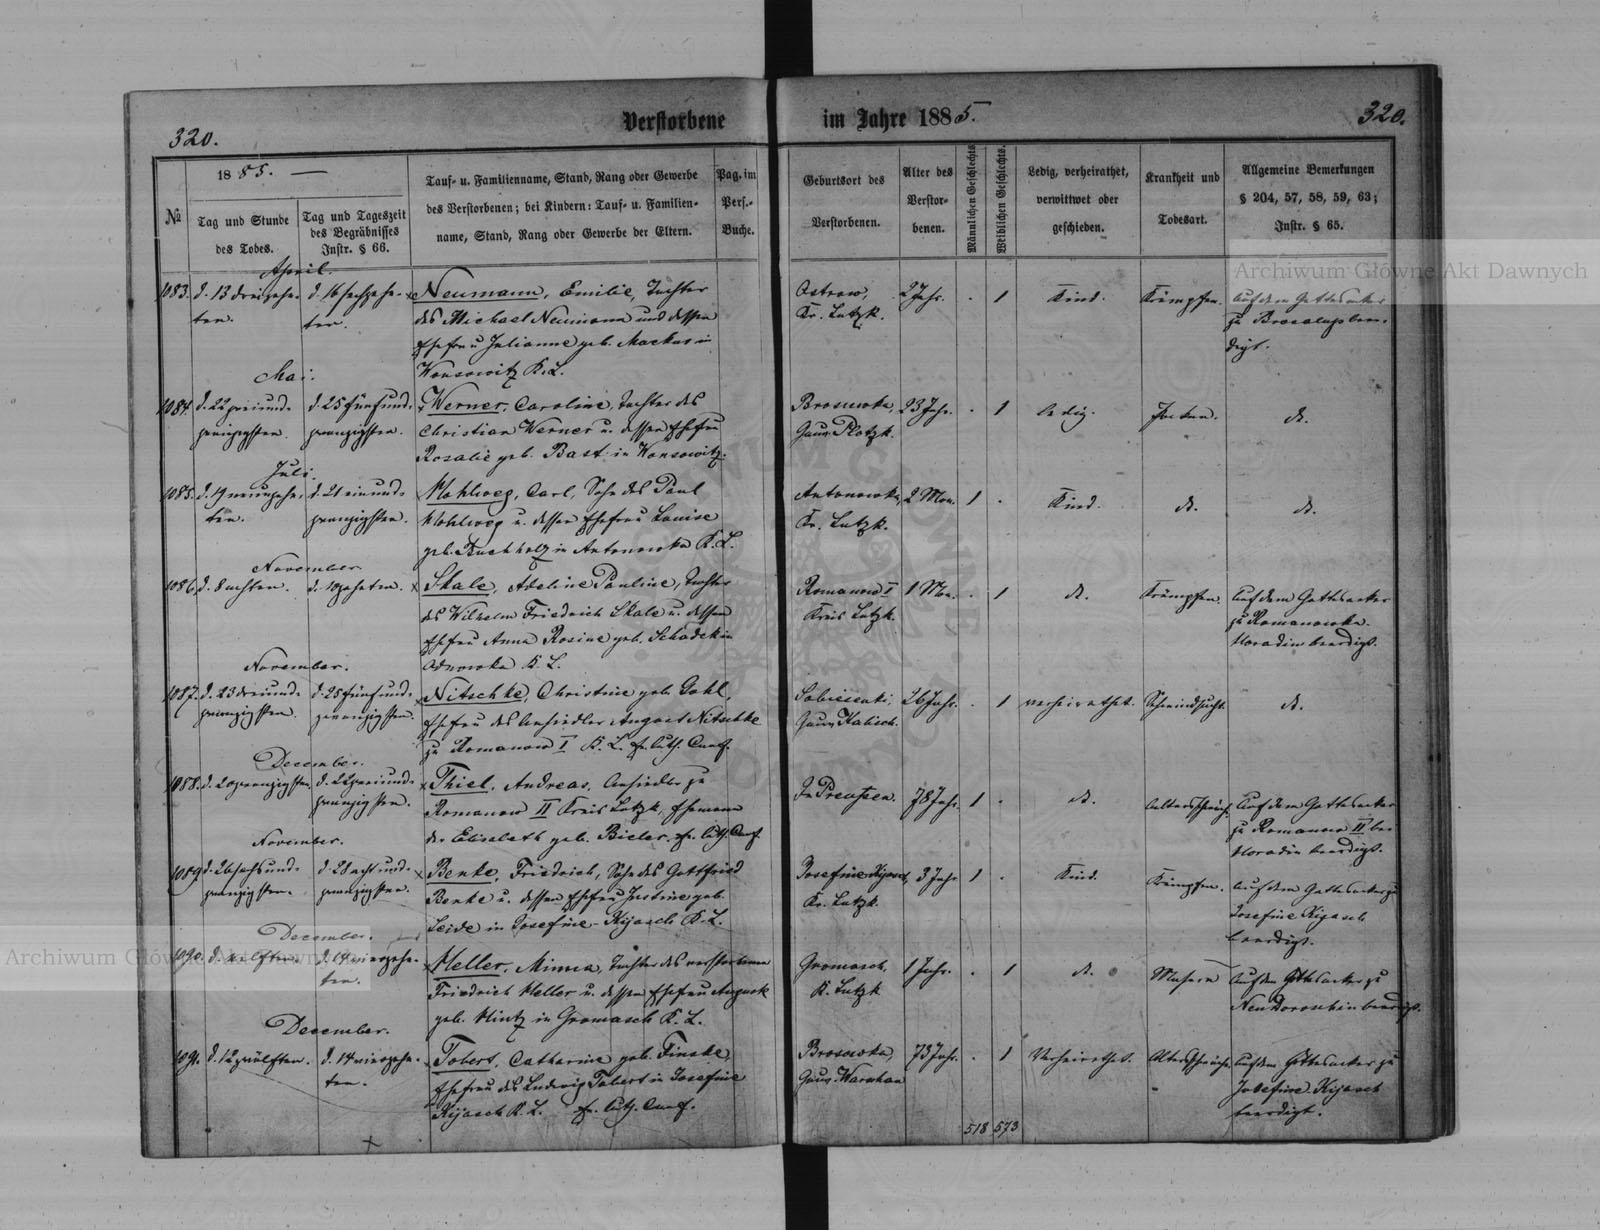 320.
Verstorbene
im Jahre 1885.
320.
№
1885. —
Tag und Stunde
des Todes.
Tag und Tageszeit
des Begräbnisses
Instr. § 66.
Tauf- u. Familienname, Stand, Rang oder Gewerbe
des Verstorbenen; bei Kindern: Tauf- u. Familien-
name, Stand, Rang oder Gewerbe der Eltern.
Pag. im
Pers.-
Buche.
Geburtsort des
Verstorbenen.
Alter des
Verstor-
benen.
Männlichen Geschlechts.
Weiblichen Geschlechts.
Ledig, verheirathet,
verwittwet oder
geschieden.
Krankheit und
Todesart.
Allgemeine Bemerkungen
§ 204, 57, 58, 59, 63;
Instr. § 65.
April.
1083. d. 13 dreizehn-
ten.
d. 16 sechzehn-
ten.
Neumann, Emilie, Tochter
des Michael Neumann und dessen
Ehefrau Julianne geb. Markus in
Wonsowitz K. L.
Ostrow,
Kr. Lutzk.
2 Jahr. . 1 Kind. Krämpfen.
Auf dem Gottesacker
Mai.
1084. d. 22 zweiund-
zwanzigsten.
d. 25 fünfund-
zwanzigsten.
Werner, Caroline, Tochter des
Christian Werner u. dessen Ehefrau
Rosalie geb. Bast in Wonsowitz.
Gouv. Plotzk.
23 Jahr. . 1 ledig. do.
Juli.
1085. d. 19 neunzehn-
ten.
d. 21 einund-
zwanzigsten.
Wohlweg, Carl, Sohn des Paul
Wohlweg u. dessen Ehefrau Louise
geb. Buchholz in Antonowka K. L.
Antonowka,
Kr. Lutzk.
2 Mon. 1 . Kind. do. do.
November.
1086. d. 8 achten. d. 10 zehnten.
Skale, Adeline Pauline, Tochter
des Wilhelm Friedrich Skale u. dessen
Ehefrau Anna Rosine geb. Schadek in
K. L.
Romanow I
Kreis Lutzk.
1 Mon. . 1 do. Krämpfen.
Auf dem Gottesacker
zu Romanowka
beerdigt.
November.
1087. d. 23 dreiund-
zwanzigsten.
d. 25 fünfund-
zwanzigsten.
Nitschke, Christine geb. Gohl,
Ehefrau des Ansiedler August Nitschke
zu Romanow I K. L. ev. luth. Conf.
Gouv. Kalisch.
26 Jahr. . 1 verheirathet. Schwindsucht. do.
December.
1088. d. 20 zwanzigsten. d. 22 zweiund-
zwanzigsten.
Thiel, Andreas, Ansiedler zu
Romanow II Kreis Lutzk, Ehemann
der Elisabeth geb. Bieler. ev. luth. Conf.
In Preußen. 78 Jahr. 1 . do. Altersschwäche.
Auf dem Gottesacker
zu Romanow II bei
beerdigt.
November.
1089. d. 26 sechsund-
zwanzigsten.
d. 28 achtund-
zwanzigsten.
Benke, Friedrich, Sohn des Gottfried
Benke u. dessen Ehefrau Justine geb.
Seide in Josefine-Kijasch K. L.
Josefine Kijasch,
Kr. Lutzk.
3 Jahr 1 . Kind. Krämpfen.
Auf dem Gottesacker zu
Josefine Kijasch
beerdigt.
December.
1090. d. zwölften. d. 14 vierzehn-
ten.
Heller, Minna, Tochter des verstorbenen
Friedrich Heller u. dessen Ehefrau August
geb. Hintz in Gromasch K. L.
Gromasch,
K. Lutzk
1 Jahr. . 1 do. Masern
Auf dem Gottesacker zu
beerdigt.
December.
1091. d. 12 zwölften. d. 14 vierzehn-
ten.
Tobert, Catharine geb. Finske,
Ehefrau des Ludwig Tobert in Josefine
Kijasch K. L. ev. luth. Conf.
Gouv. Warschau
73 Jahr. . 1 Verheirathet. Altersschwäche.
Auf dem Gottesacker zu
Josefine Kijasch
beerdigt.
518 573
Archiwum Główne Akt Dawnych
Archiwum Główne Akt Dawnych